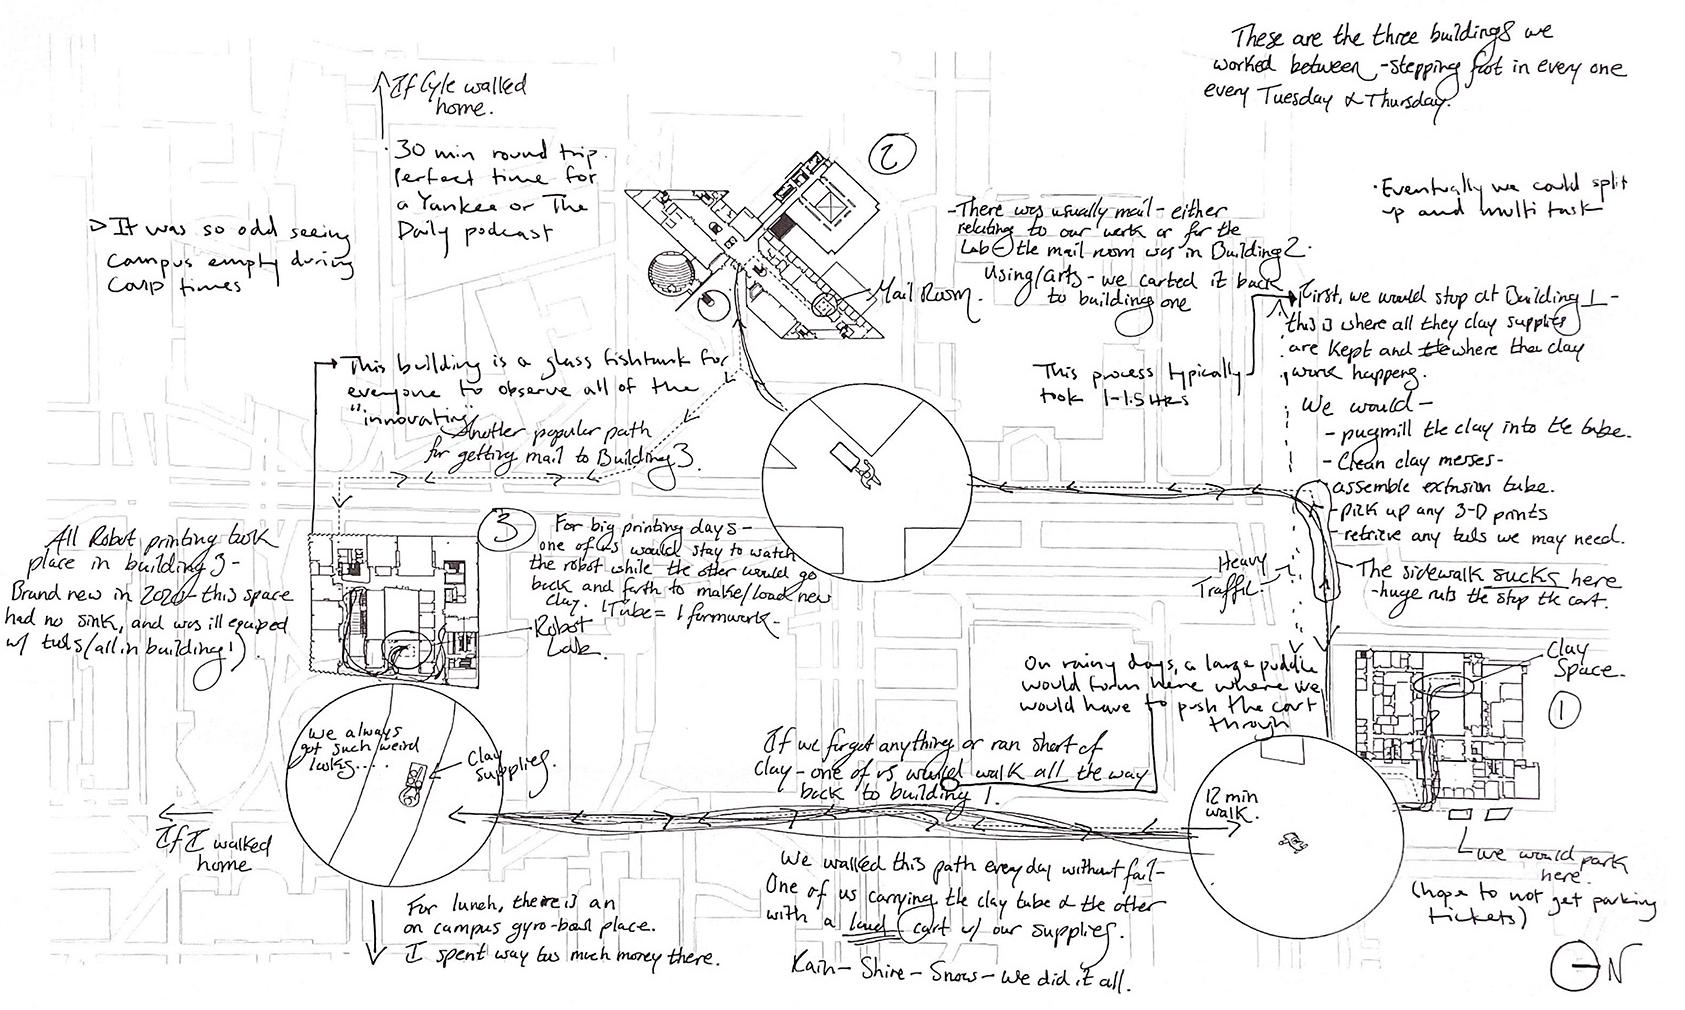 These are the three buildings we
worked between - stepping foot in every one
every Tuesday & Thursday.
If Lyle walked
home.
30 min round trip.
Perfect time for
a Yankee or The
Daily podcast
> It was so odd seeing
campus empty during
COVID times
2
· Eventually we could split
up and multi task
- There was usually mail - either
relating to our work or for the
Lab - the mail room was in Building 2.
Using carts - we carted it back
to building one
Mail Room.
First, we would stop at Building 1 -
this is where all they clay supplies
are kept and where the clay
work happens.
This process typically
took 1-1.5 HRS
We would -
- pugmill the clay into the tube.
- Clean clay messes -
assemble extrusion tube.
- pick up any 3-D prints
- retrieve any tools we may need.
This building is a glass fishtank for
everyone to observe all of the
"innovating"
Another popular path
for getting mail to Building 3.
All Robot printing took
place in building 3 -
Brand new in 2020 - this space
had no sink, and was ill equiped
w/ tools (all in building 1).
3
For big printing days -
one of us would stay to watch
the robot while the other would go
back and forth to make/load new
clay. 1 Tube = 1 formwork -
Robot
Lab.
Heavy
Traffic.
The sidewalk sucks here
- huge ruts the stop the cart.
On rainy days, a large puddle
would form here where we
would have to push the cart
through
Clay
Space.
1
we always
got such weird
looks....
Clay
supplies.
If we forgot anything or ran short of
clay - one of us would walk all the way
back to building 1.
12 min
walk.
If I walked
home
we would park
here.
(hope to not get parking
tickets)
We walked this path everyday without fail -
One of us carrying the clay tube & the other
with a loud cart w/ our supplies.
For lunch, there is an
on campus gyro-bowl place.
I spent way too much money there.
Rain - Shine - Snow - we did it all.
N